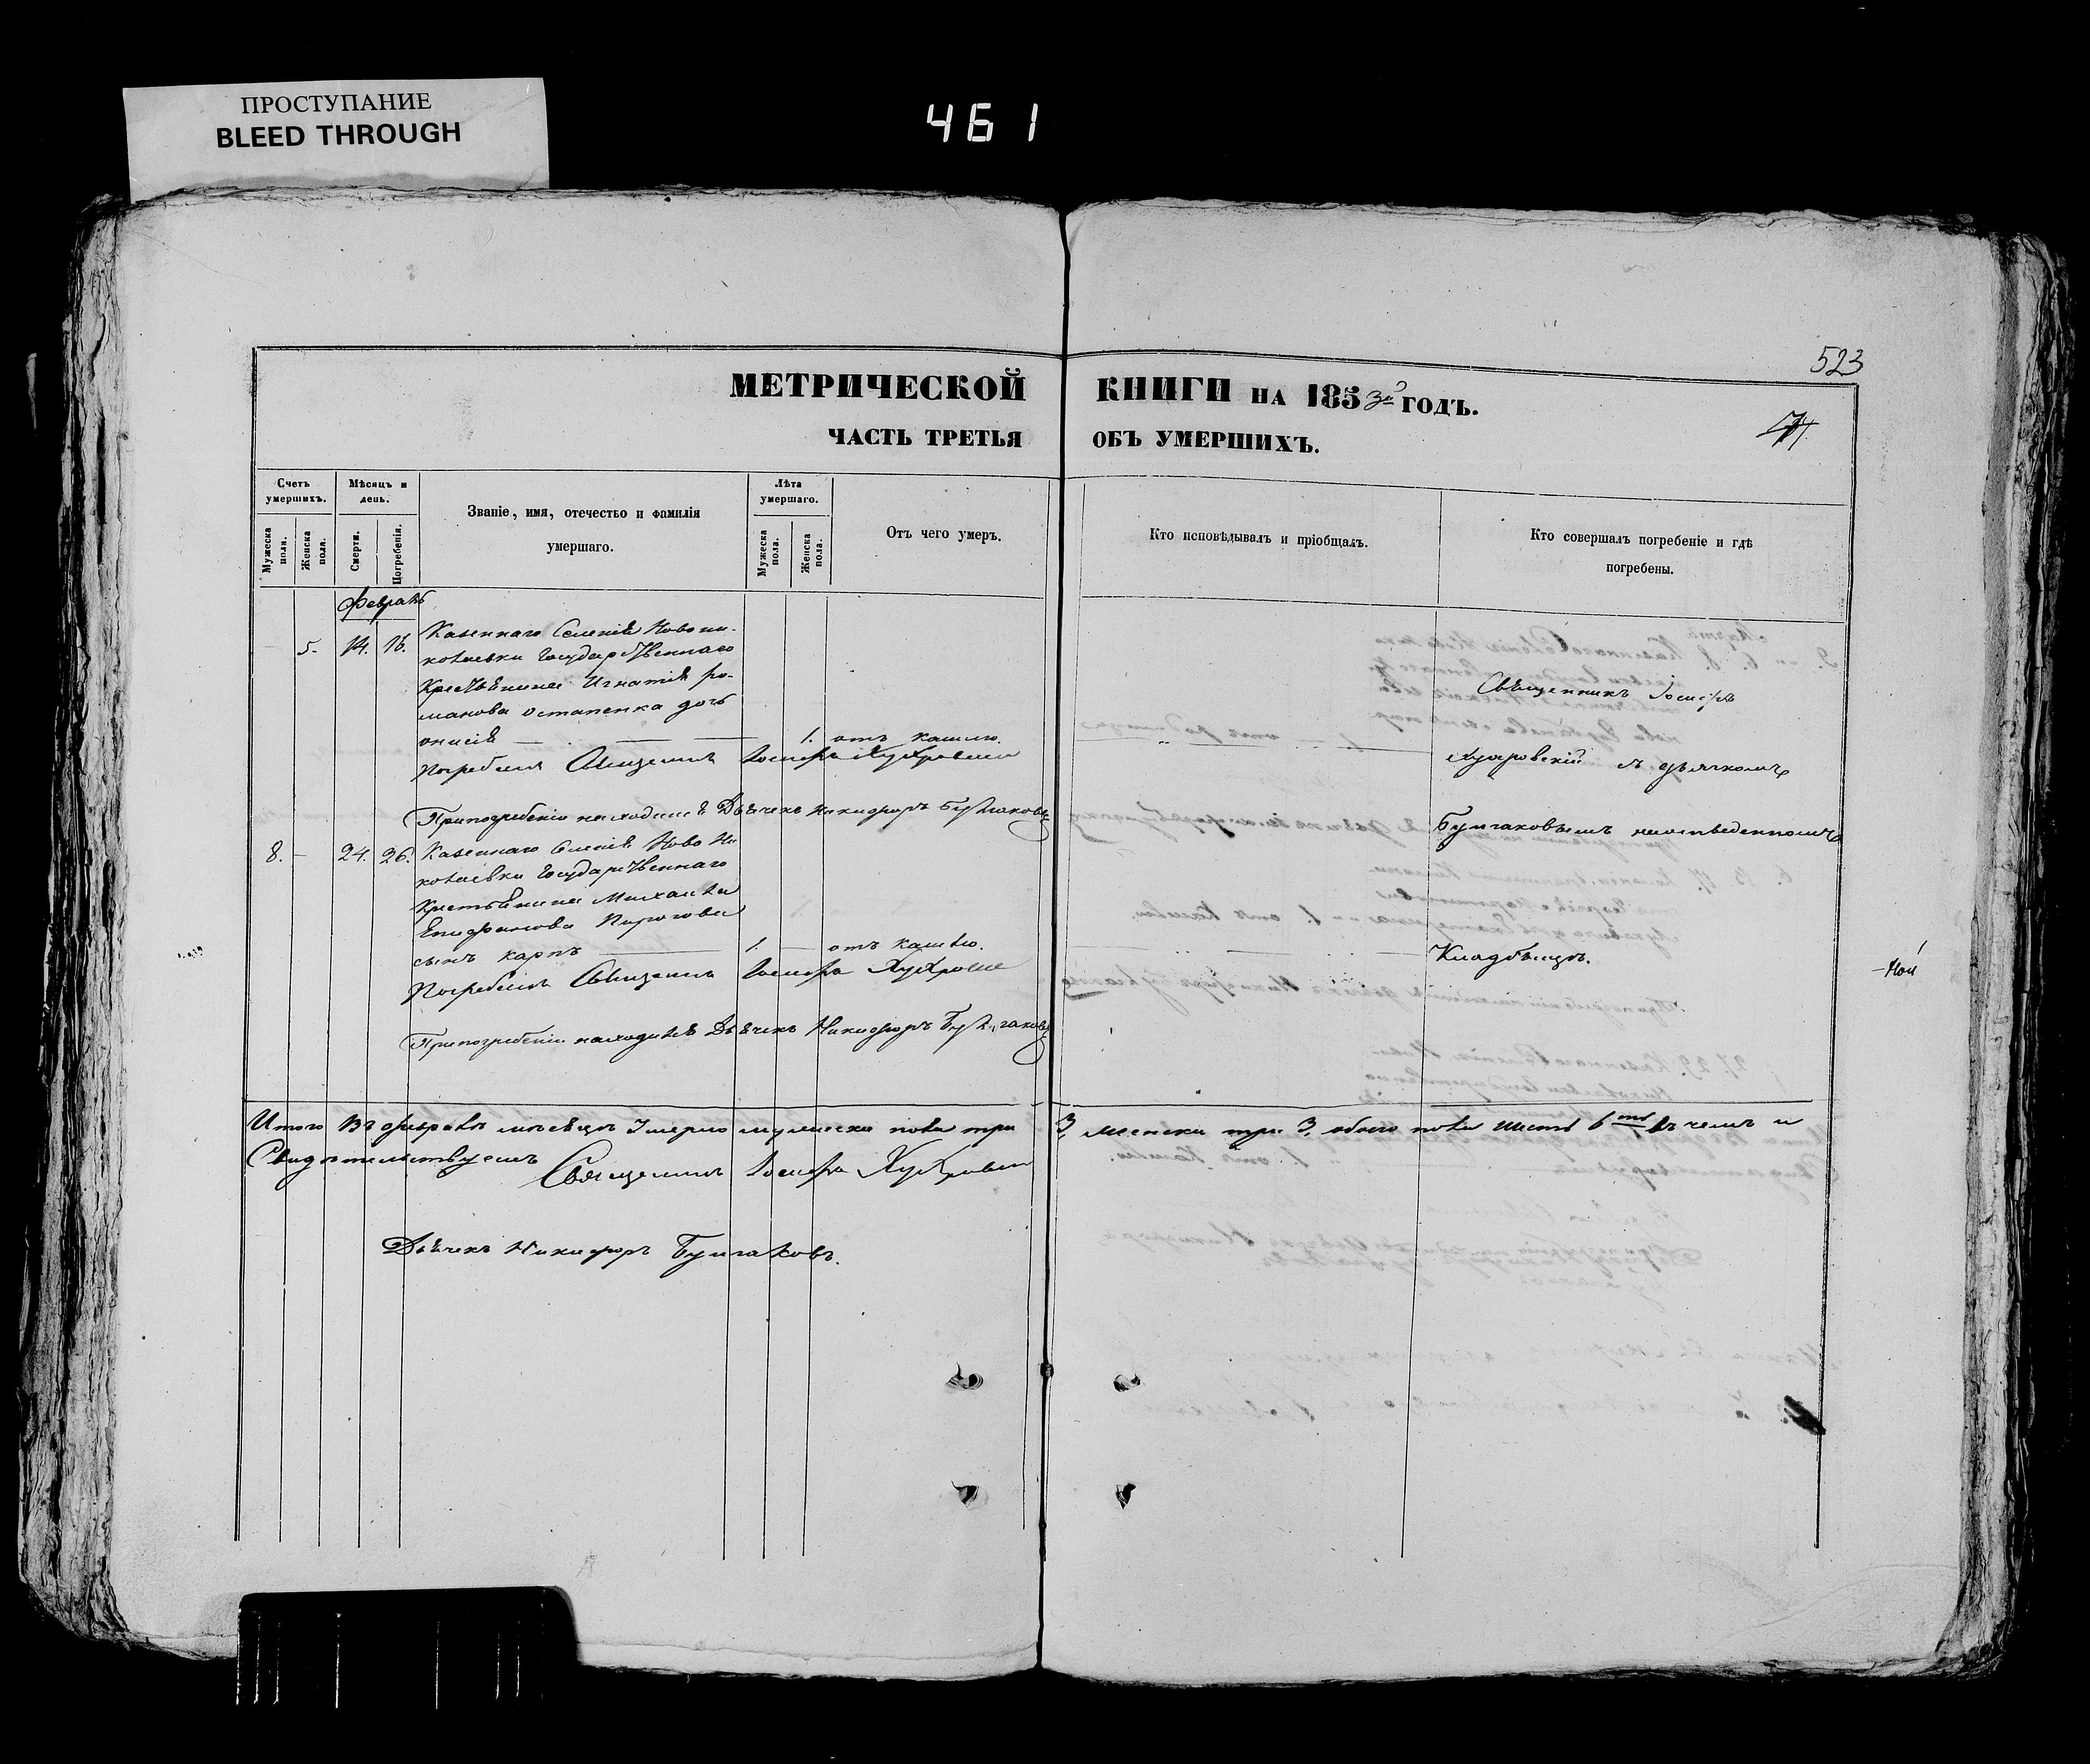 ПРОСТУПАНИЕ
BLEED THROUGH
461
523
МЕТРИЧЕСКОЙ КНИГИ НА 1853й ГОДЪ.
ЧАСТЬ ТРЕТЬЯ ОБЪ УМЕРШИХЪ.
Счетъ умершихъ.
Мужеска пола.
Женска пола.
Мѣсяцъ и день.
Смерти.
Погребенія.
Званіе, имя, отечество и фамилія
умершаго.
Лѣта умершаго.
Мужеска пола.
Женска пола.
Отъ чего умеръ.
Кто исповѣдывалъ и пріобщалъ.
Кто совершалъ погребеніе и гдѣ
погребены.
Февраль
5. 14. 16. Казеннаго Селенія Новони-
колаевки Государственнаго
Крестьянина Игнатія ро-
манова остапенка дочь
онисія 1. отъ кашлю.
Погребалъ Священникъ Іосифъ
При погребеніи находился Дьячекъ Никифоръ Булгаковъ
8. — 24. 26. Казеннаго Селенія Ново Ни
колаевки Государственнаго
Крестьянина Михаила
Епифанова Пирогова
сынъ карпъ 1. — отъ кашлю.
Погребалъ Священникъ Іосифъ
При погребеніи находился Дьячекъ Никифоръ Булгаковъ
Священникъ Іосифъ
съ дьячкомъ
Булгаковымъ на отведенномъ
Кладбищѣ.
-ной
Итого Въ февралѣ мѣсяцѣ Умерло мужеска пола три 3, женска три 3, обоего пола шесть 6ть въ чемъ и
Свидѣтельствуемъ Священникъ Іосифъ
Дьячекъ Никифоръ Булгаковъ.